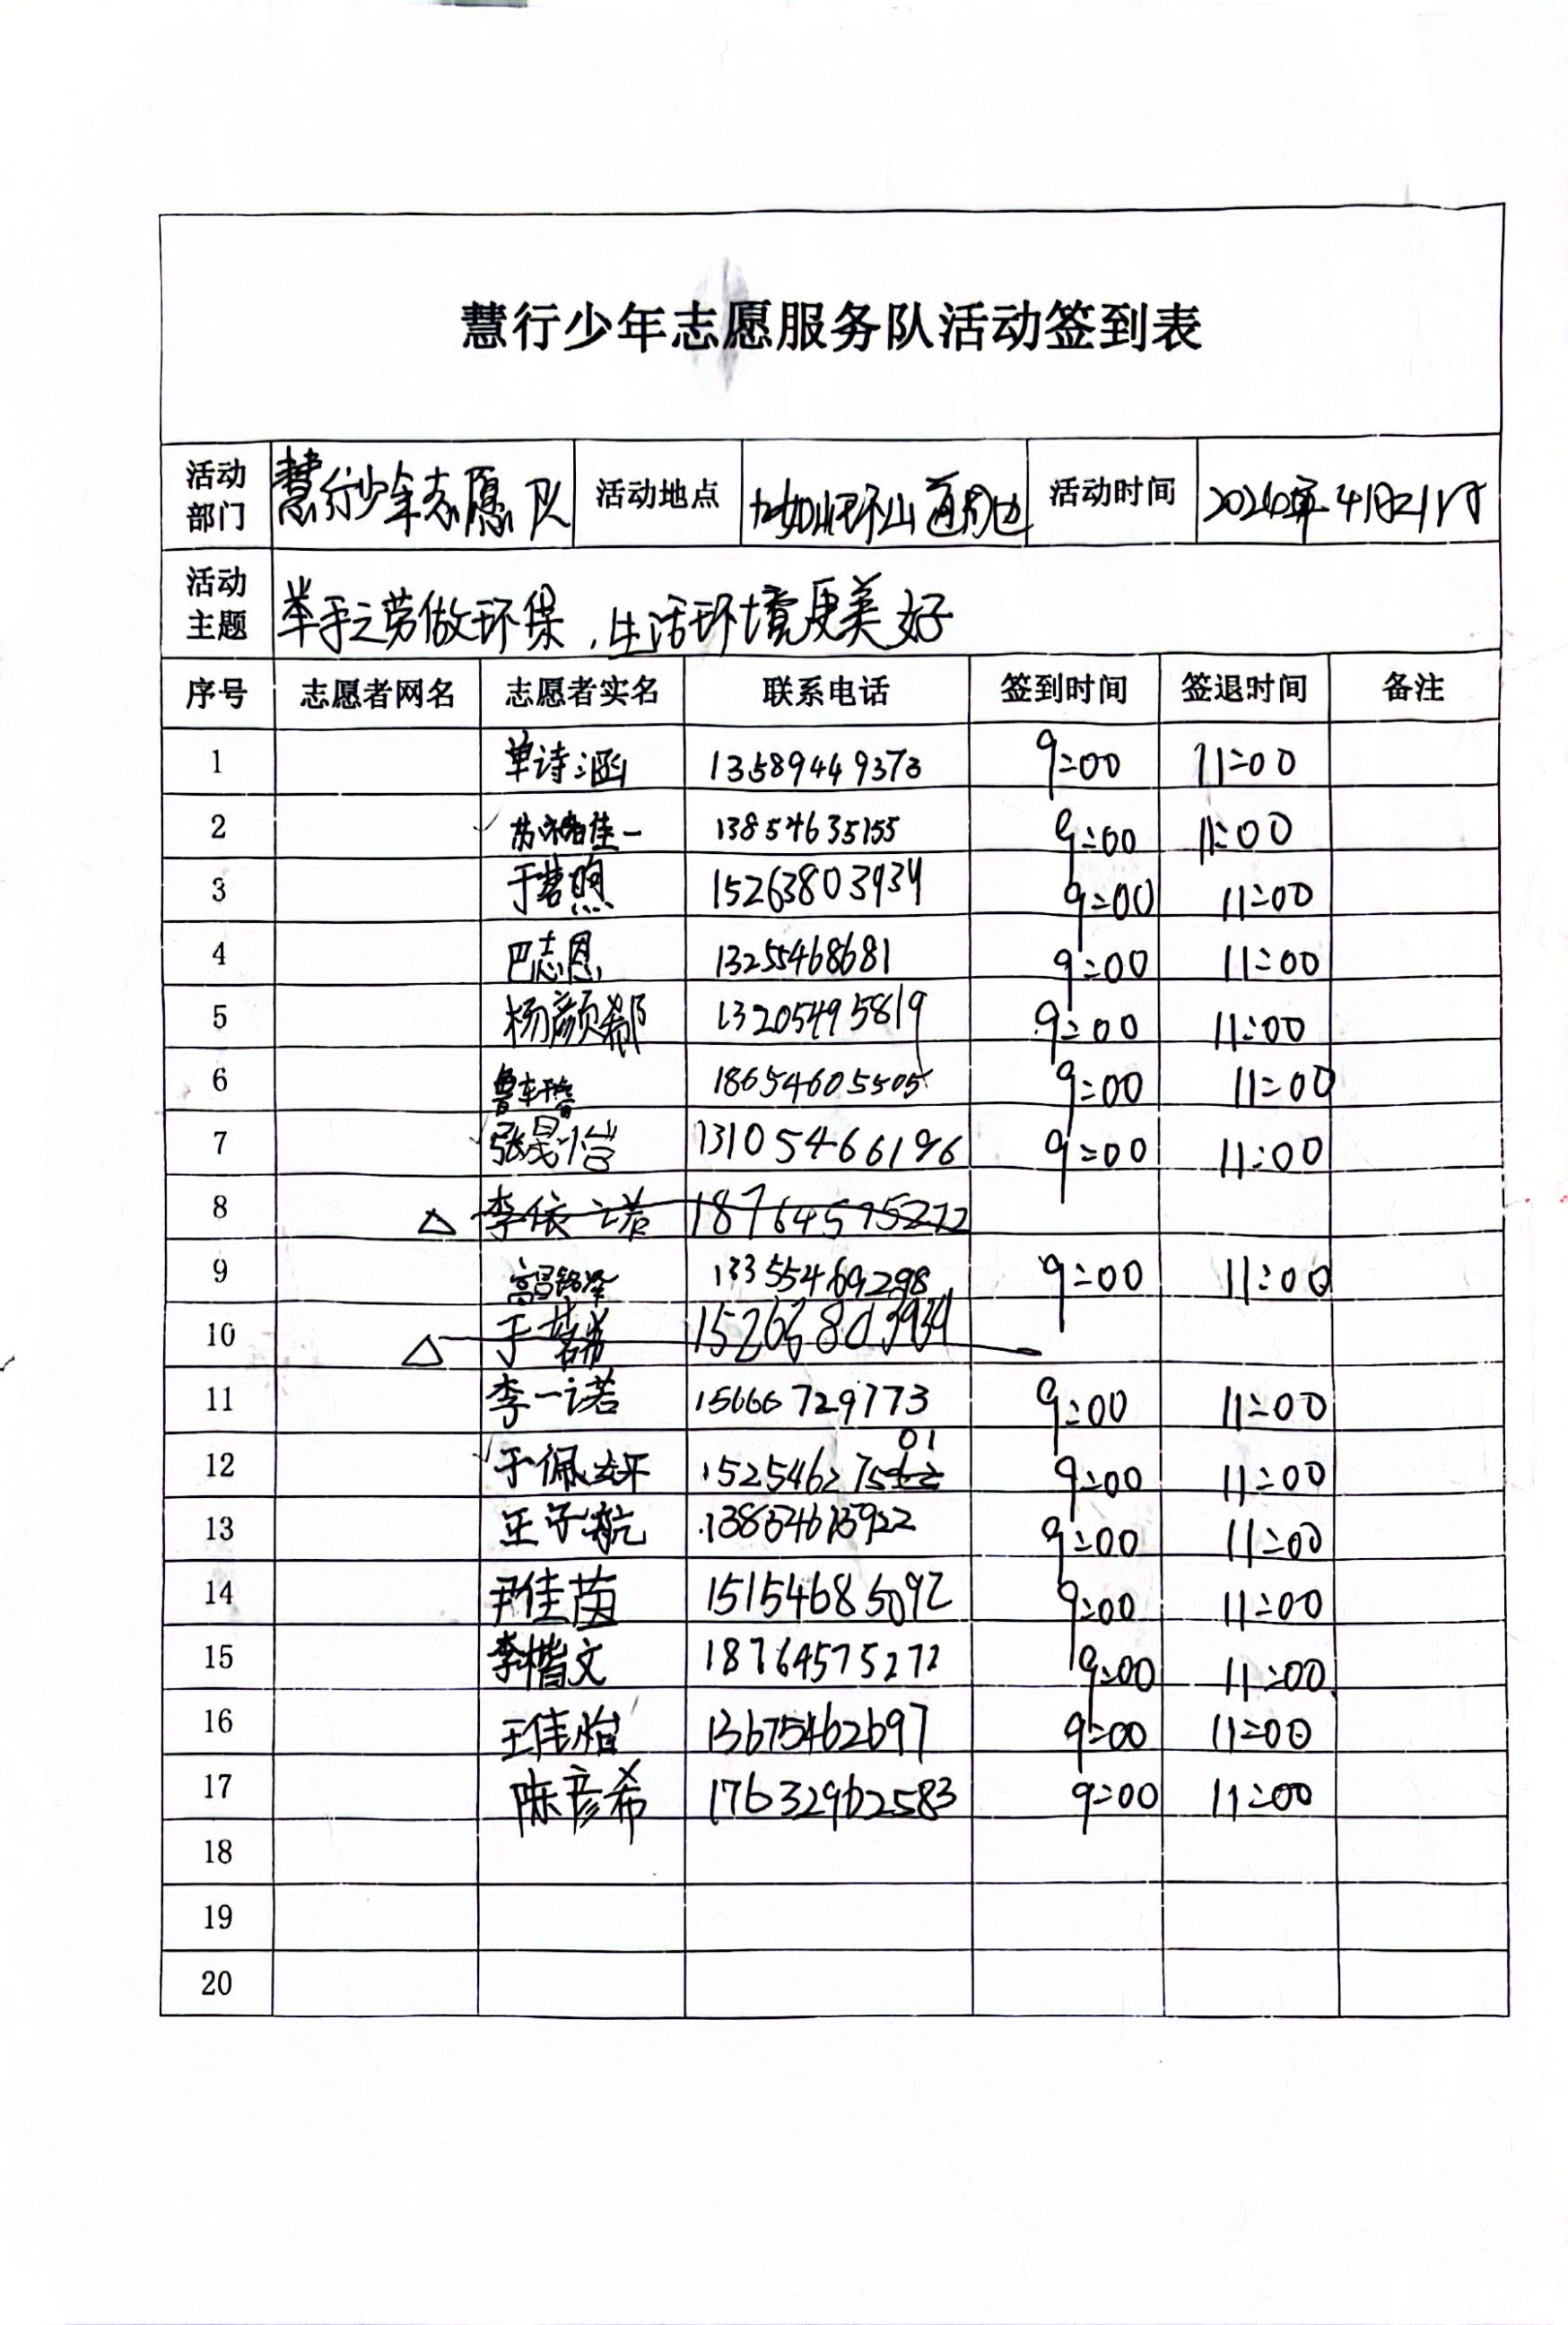 慧行少年志愿服务队活动签到表
活动部门 慧行少年志愿队 活动地点 环山 周边 活动时间 年4月21日
活动主题 举手之劳做环保，生活环境更美好
序号 志愿者网名 志愿者实名 联系电话 签到时间 签退时间 备注
1 单诗涵 13589449373 9:00 11:00
2 苏 佳一 13854635155 9:00 11:00
3 于若煦 15263803934 9:00 11:00
4 巴志恩 13255468681 9:00 11:00
5 杨颜郗 13205495819 9:00 11:00
6 鲁 18654605505 9:00 11:00
7 张晟怡 13105466196 9:00 11:00
8 △ 李依诺 18764575272
9 高铭泽 13355469298 9:00 11:00
10 △ 于若 15263803934
11 李一诺 15666729773 9:00 11:00
12 于佩 152546275 01 9:00 11:00
13 王子航 13854613922 9:00 11:00
14 尹佳茵 15154685092 9:00 11:00
15 李楷文 18764575272 9:00 11:00
16 王佳怡 13675462697 9:00 11:00
17 陈彦希 17632962583 9:00 11:00
18
19
20